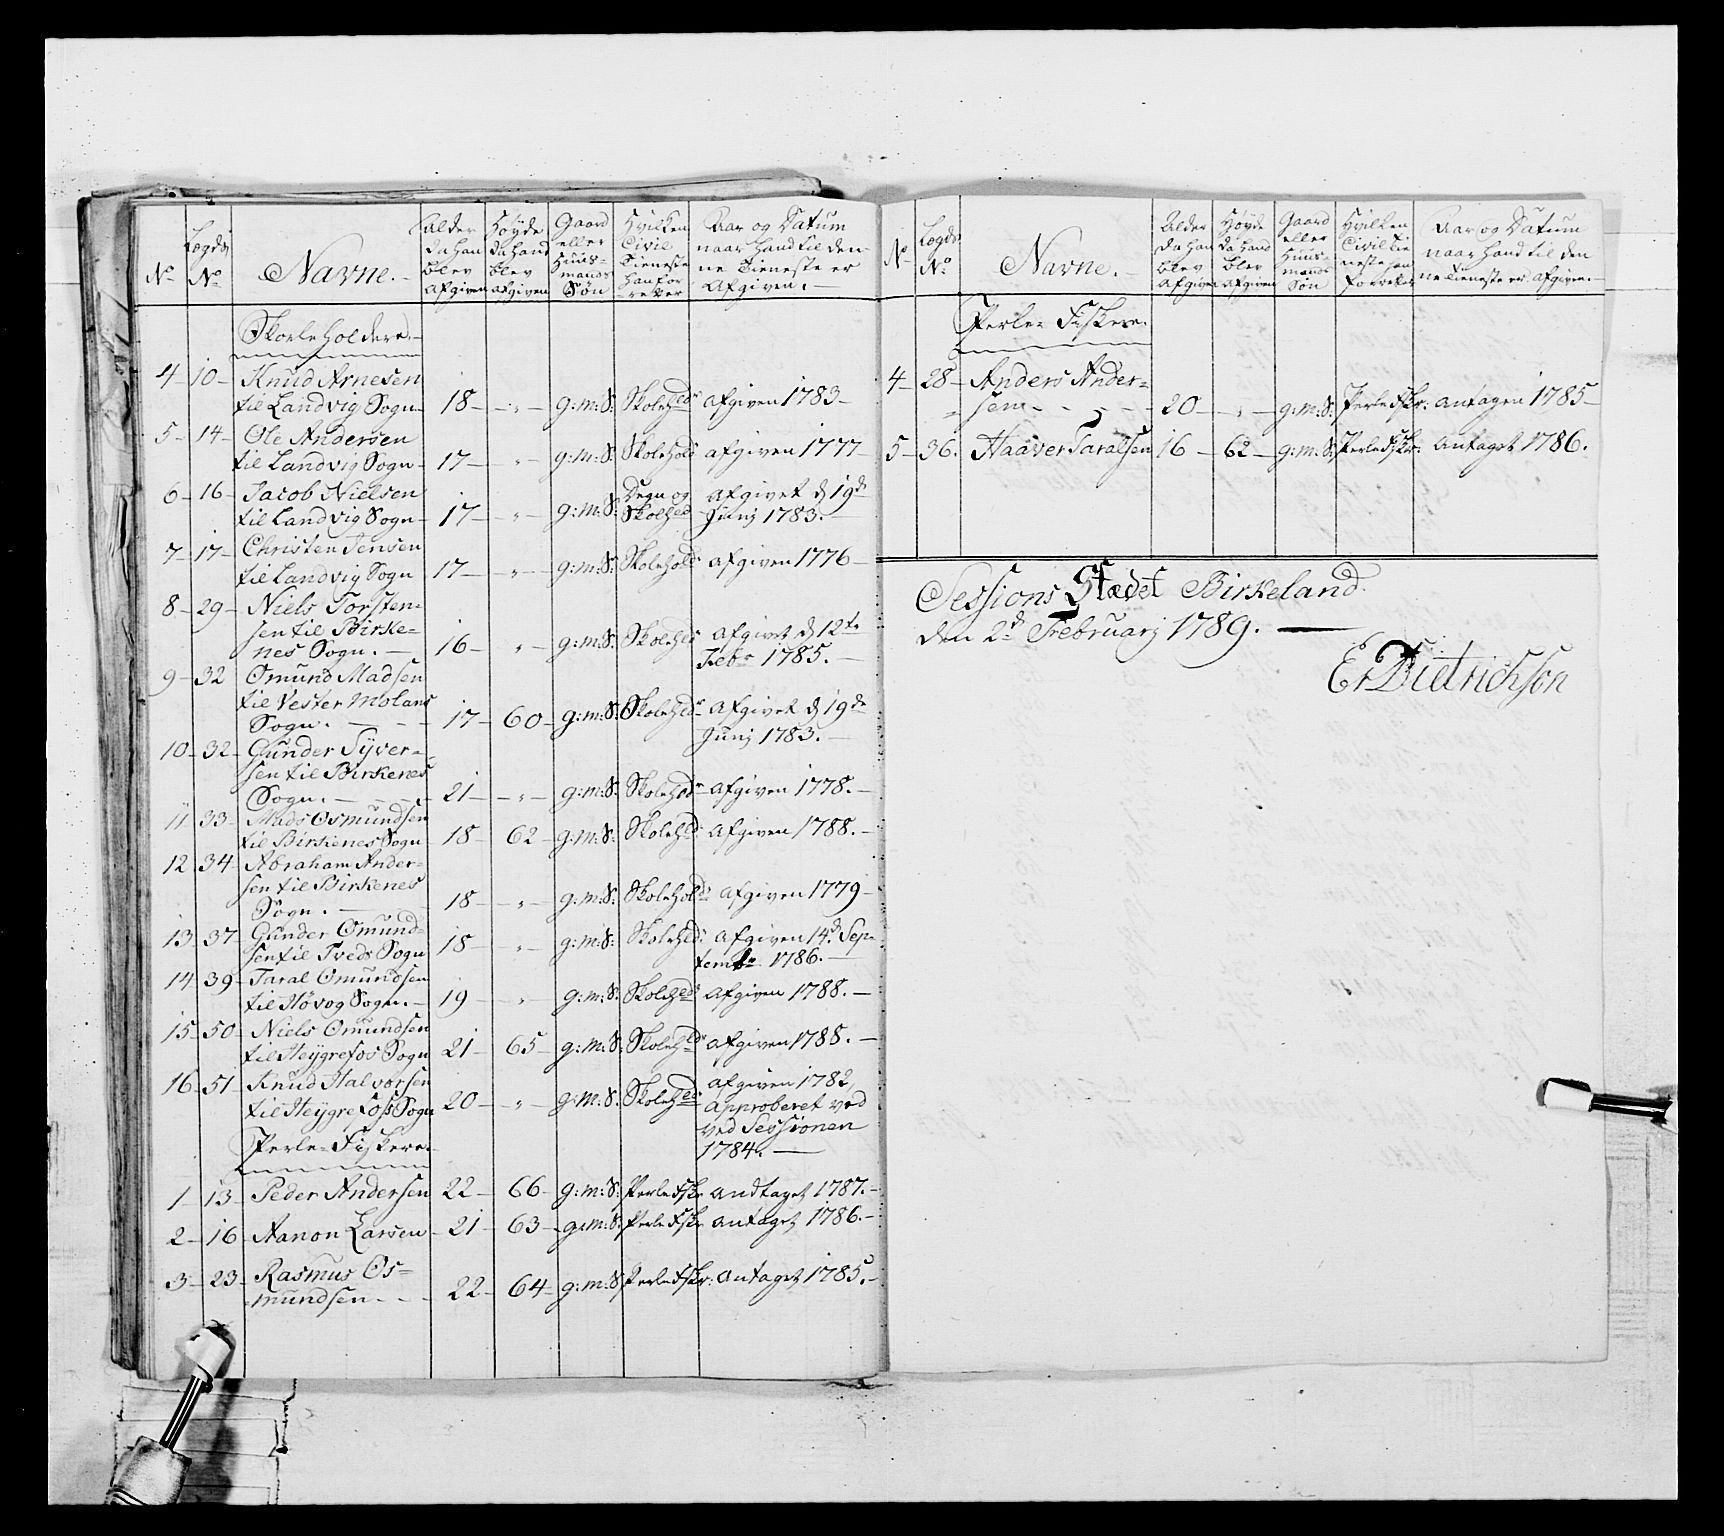 No
Lægds No
Navne.
Alder da han blev afgiven
Høyde da hand blev afgiven
Gaard eller Huus-mands Søn
Hvilken Civil Tieneste han forretter
Aar og Datum naar hand til denne Tieneste er Afgiven.
Skoleholdere.
4 10 Knud Arnesen
til Landvig Sogn 18 " g: m: S: Skolehdr afgiven 1783
5 14 Ole Andersen
til Landvig Sogn 17 " g: m: S: Skolehold afgiven 1777
6 16 Jacob Nielsen Degn og afgivet d 19de
til Landvig Sogn 17 " g: m: S: Skolehd Junj 1783.
7 17 Christen Jensen
til Landvig Sogn 17 " g: m: S: Skolehold afgiven 1776
8 29 Niels Torsten-
sen til Birke- afgivet d 12te
nes Sogn. 16 " g: m: S: Skolehd Febr 1785.
9 32 Omund Madsen
til Vester Molans
Sogn. 17 60 g: m: S: Skolehdr afgivet d 19de
Junj 1783.
10 32 Gunder Syver-
sen til Birkenes
Sogn. 21 " g: m: S: Skolehdr afgiven 1778.
11 33 Mads Osmundsen
til Birkenes Sogn 18 62 g: m: S: Skolehd: afgiven 1788.
12 34 Abraham Ander-
sen til Birkenes
Sogn. 18 " g: m: S: Skolehold: afgiven 1779
13 37 Gunder Omund-
sen til Tveds Sogn 18 " g: m: S: Skolehd: afgiven 14d Sep-
temb 1786.
14 39 Taral Omundsen
til Høvog Sogn. 19 " g: m: S: Skolehd: afgiven 1788.
15 50 Niels Omundsen
til Heygrefos Sogn 21 65 g: m: S: Skolehd: afgiven 1788.
16 51 Knud Halvorsen afgiven 1782,
til Heygrefos Sogn 20 " g: m: S: Skolehd: approberet ved
ved Sessionen
1784.
Perle-Fiskere.
1 13 Peder Andersen 22 66 g: m: S: Perle Fskr andtaget 1787.
2 16 Aanon Larsen 21 63 g: m: S: Perle Fskr antaget 1786.
3 23 Rasmus Os-
mundsen 22 64 g: m: S: Perle Fskr: antaget 1785.
No
Lægds No
Navne.
Alder da han blev afgiven
Høyde da hand blev afgiven
Gaard eller Huus-mands Søn
Hvilken Civil Tieneste han forretter
Aar og Datum naar Hand til denne Tieneste er afgiven.
Perle-Fiskere.
4 28 Anders Ander-
sen 20 " g: m: S: Perle Fskr: antagen 1785
5 36. Haaver Taralsen 16 62 g: m: S: Perle Fskr: antaget 1786.
Sessions Stædet Birkeland.
den 2d Februarj 1789.
Er Dietrichson